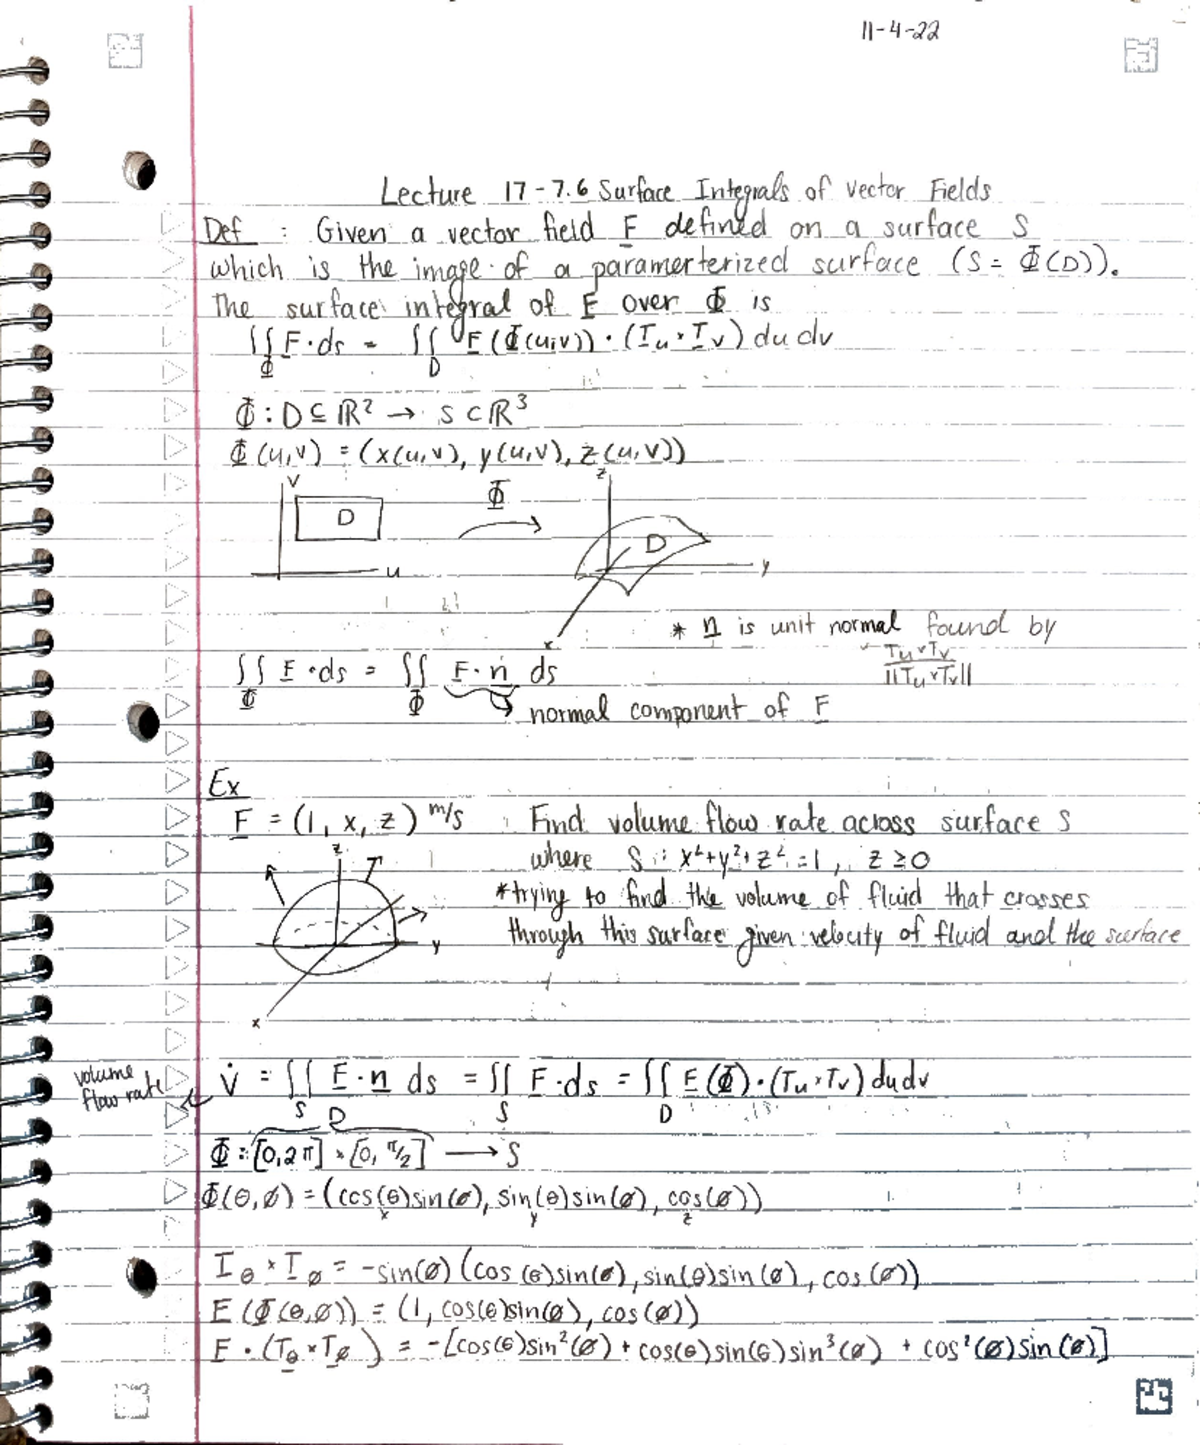 11-4-22
Lecture 17-7.6 Surface Integrals of Vector Fields
Def : Given a vector field F defined on a surface S
which is the image of a paramerterized surface (S = Φ(D)).
The surface integral of F over Φ is
∬_Φ F·ds = ∬_D F(Φ(u,v))·(T_u×T_v) du dv
Φ: D ⊆ ℝ² → S ⊂ ℝ³
Φ(u,v) = (x(u,v), y(u,v), z(u,v))
v z
D Φ D
u y
x
* n is unit normal found by
T_u×T_v / ||T_u×T_v||
∬_Φ F·ds = ∬_Φ F·n ds
normal component of F
Ex
F = (1, x, z) m/s : Find volume flow rate across surface S
where S: x²+y²+z²=1, z≥0
*trying to find the volume of fluid that crosses
through this surface given velocity of fluid and the surface
z
y
x
volume
flow rate
V̇ = ∬_S F·n ds = ∬_S F·ds = ∬_D F(Φ)·(T_u×T_v) du dv
D
Φ: [0,2π] × [0, π/2] → S
Φ(θ,ø) = (cos(θ)sin(ø), sin(θ)sin(ø), cos(ø))
x y z
T_θ × T_ø = -sin(ø)(cos(θ)sin(ø), sin(θ)sin(ø), cos(ø))
F(Φ(θ,ø)) = (1, cos(θ)sin(ø), cos(ø))
F·(T_θ×T_ø) = -[cos(θ)sin²(ø) + cos(θ)sin(θ)sin³(ø) + cos²(ø)sin(ø)]